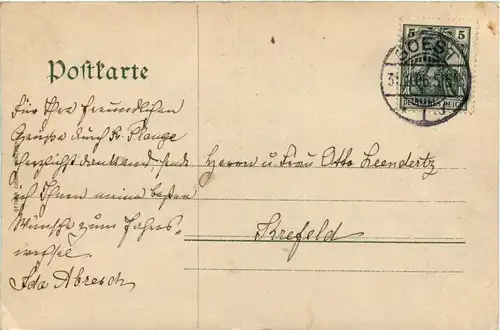 Postkarte
5 5
SOEST
DEUTSCHES REICH
Für Ihre freundlichen
Grüsse durch Fr. Plange
herzlichst dankend, sende
ich Ihnen meine besten
Wünsche zum Jahres-
wechsel.
Ida Abresch
Herrn u. Frau Otto Leendertz
Krefeld